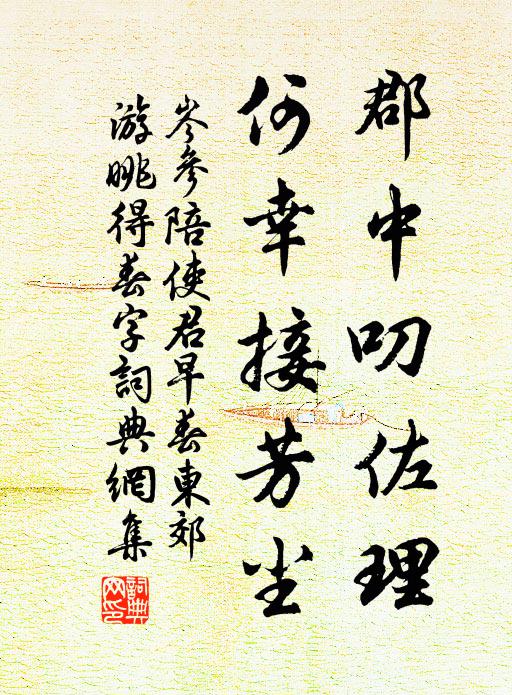 郡中叨佐理
何幸接芳尘
岑參陪使君早春東郊
游眺得春字詞典網集
詞典
网印